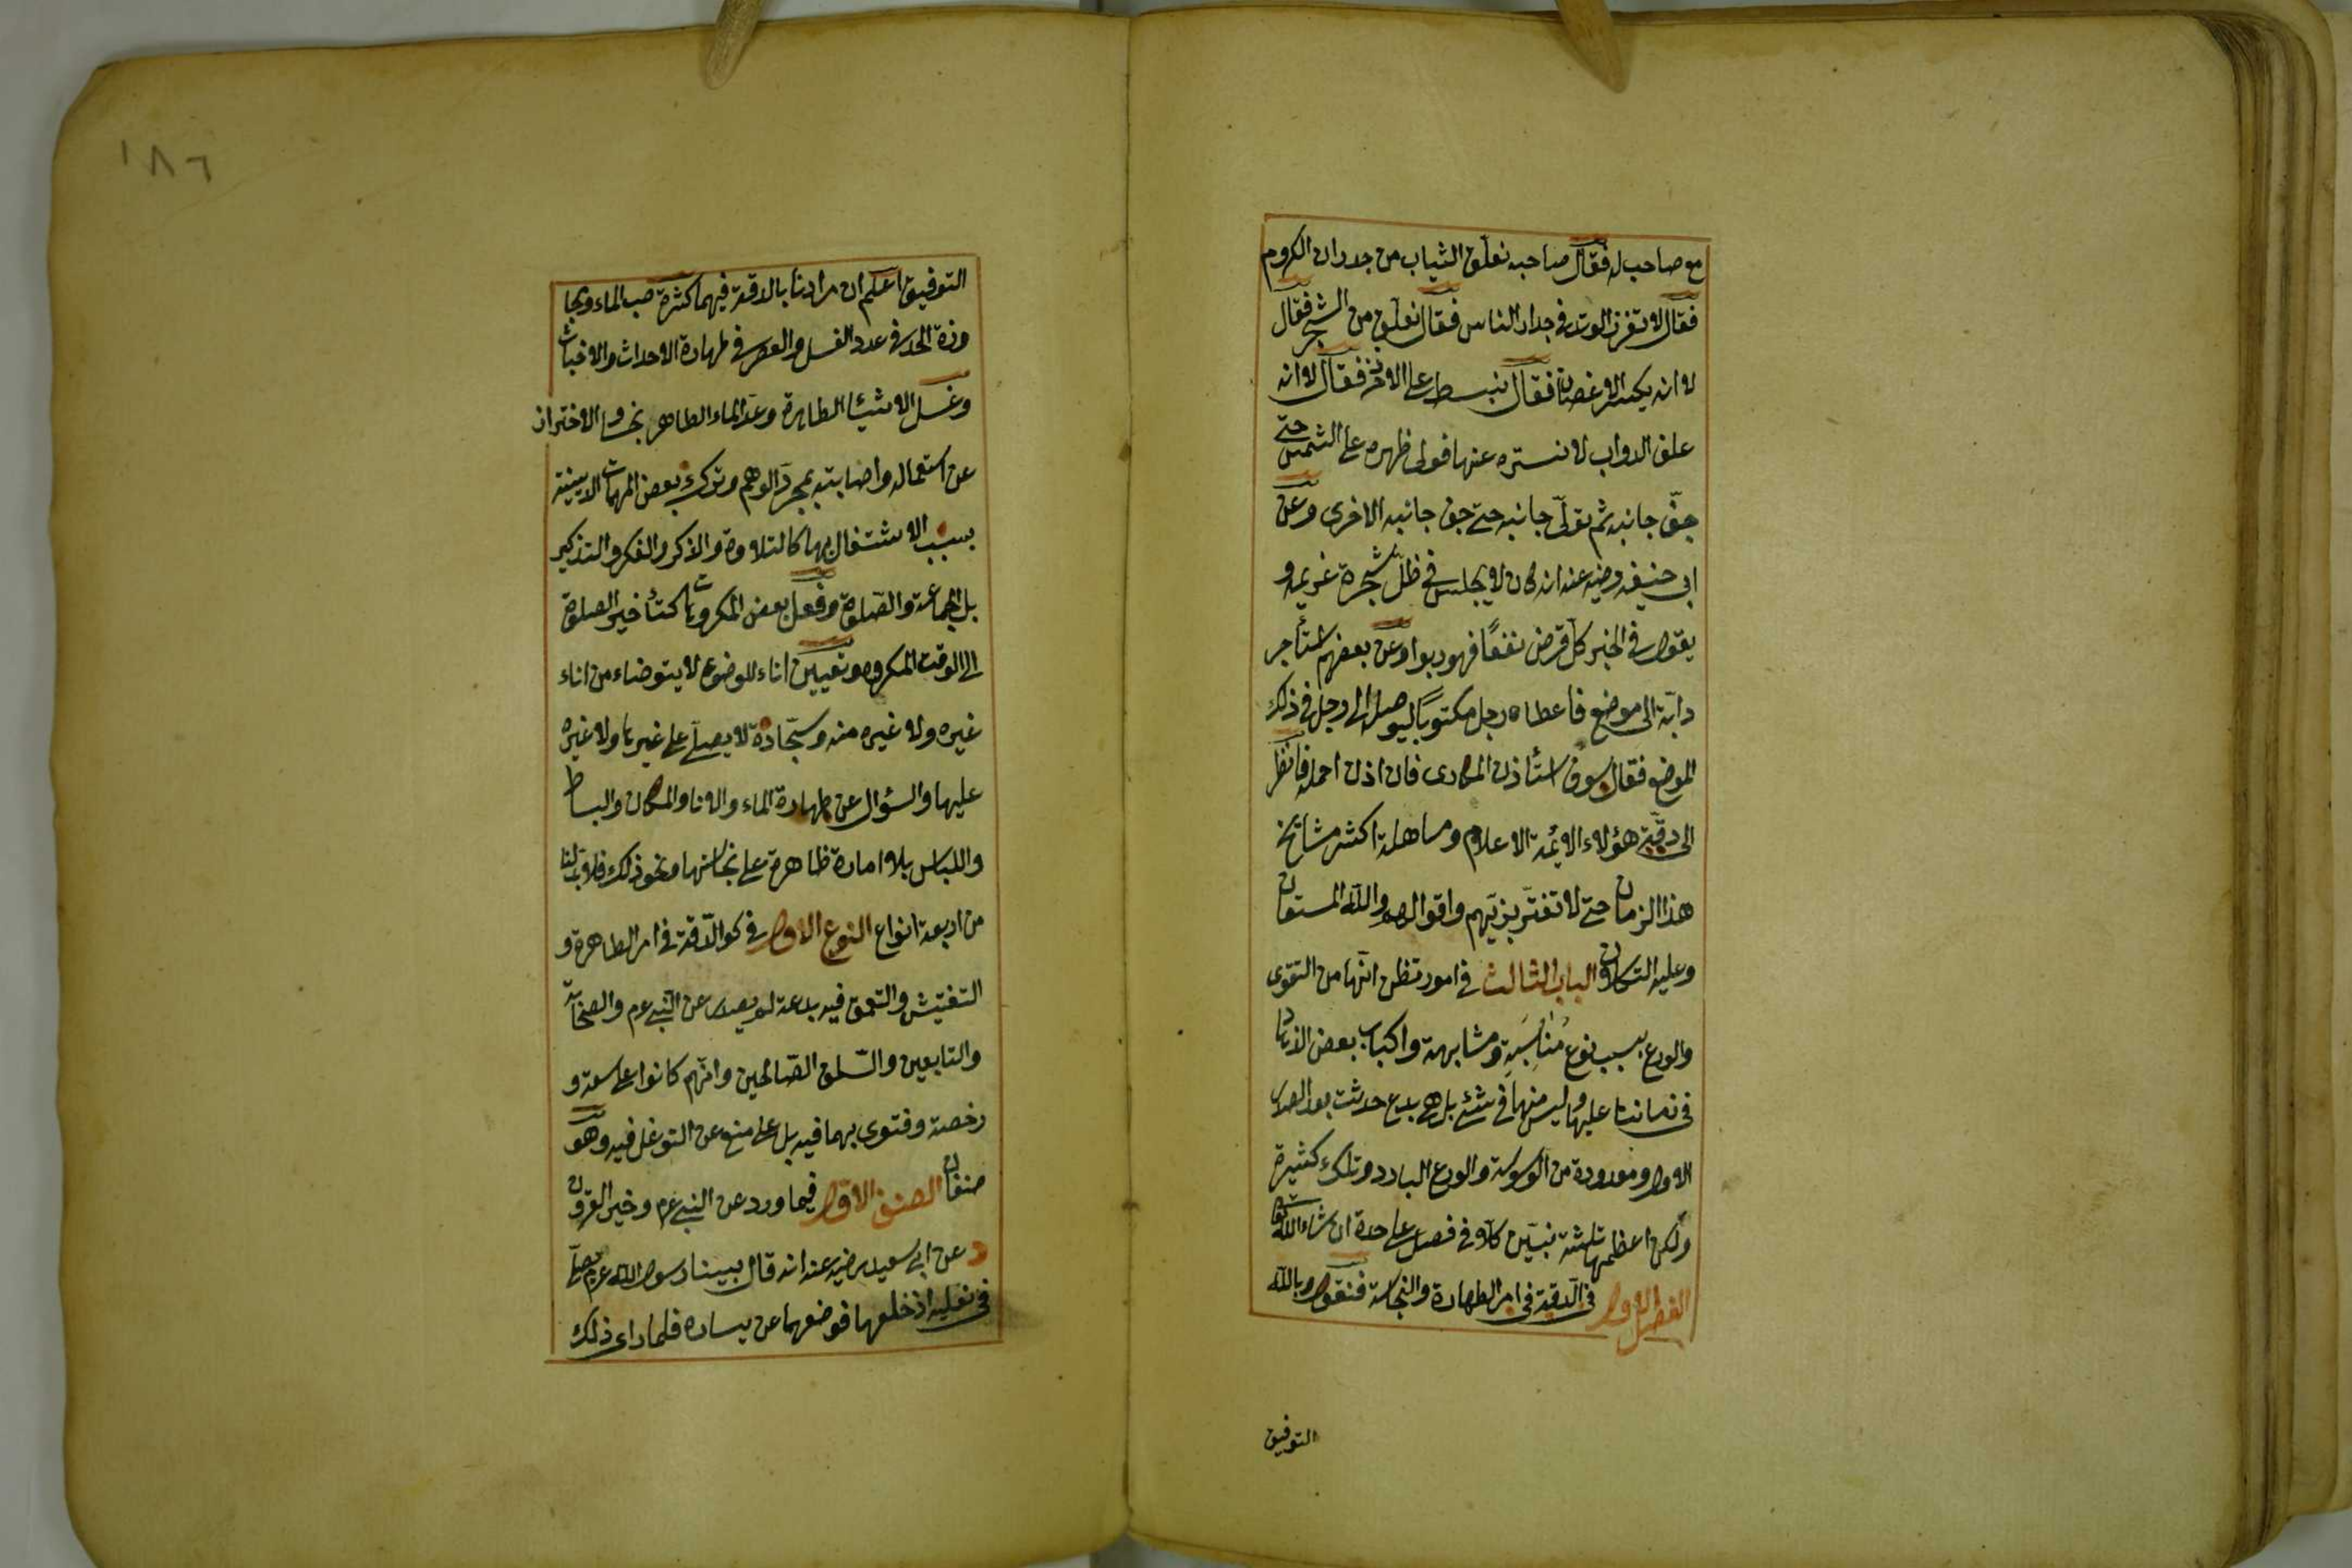 مع صاحب له فقال صاحبه نعلّق الثياب من جدران الكروم
فقال لا تغرز الوتد فى جدار الناس فقال نعلّق من الشجر فقال
لا انه يكسر الاغصان فقال نبسط على الاذخر فقال لا انه
علف الدواب لا نستره عنها فولى ظهره على الشمس حتى
جفّ جانبه ثم تولّى جانبه حتى جف جانبه الاخرى وعن
ابى حنيفه رضيه عنه انه كان لا يجلس فى ظلّ شجرة غريمه و
يقول فى الخبر كل قرض نفعًا فهو ربوا وعن بعضهم استأجر
دابّة الى موضع فاعطاه رجل مكتوبًا ليوصل الى رجل فى ذلك
الموضع فقال سوف استأذن المكارى فان اذن احمله فانظر
الى دقّة هؤلاء الائمة الاعلام ومساهلة اكثر مشايخ
هذا الزمان حتى لا تغترّ بزيّهم واقوالهم والله المستعان
وعليه التكلان الباب الثالث فى امور تظن انّها من التقوى
والورع بسبب نوع مُنَاسَبَةٍ ومشابهة واكباب بعض الزهاد
فى زماننا عليها وليس منها فى شئ بل هى بدع حدثت بعد الصدر
الاول ومعدودة من الوسوسة والورع البارد وتلك كثيرة
ولكن اعظمها ثلثة نبيّن كلّا فى فصل على حدة ان شاء الله تعا
الفصل الاول فى الدقة فى امر الطهارة والنجاسة فنقول وبالله
التوفيق
١٨٦
التوفيق اعلم ان مرادنا بالدقة فيهما كثرة صب الماء ومجا
وزة الحد فى عدد الغسل والعصر فى طهارة الاحداث والاخباث
وغسل الاشيئا الطاهرة وعدّ الماء الطاهر نجسا والاحتراز
عن استعماله واصابته بمجرّد الوهم وترك بعض المهمات الدينية
بسبب الاشتغال بها كالتلاوة والذكر والفكر والتذكير
بل الجماعة والصّلوة وفعل بعض المكروهات كتأخير الصلوة
الى الوقت المكروه وتعيين اناء للوضوء لا يتوضاء من اناء
غيره ولا غيره منه وسجّادة لا يصلّى على غيرها ولا غيره
عليها والسؤال عن طهارة الماء والانا والمكان والبساط
واللباس بلا امارة ظاهرة على نجاستها ونحو ذلك فلا بدّ لنا
من اربعة انواع النوع الاول فى كون الدّقة فى امر الطاهرة و
التفتيش والتعمق فيه بدعة لم يصدر عن النبى عم والصحابة
والتابعين والسّلف الصّالحين وانّهم كانوا على سعة و
رخصة وفتوى بهما فيه بل على منع عن التوغل فيه وهو
صنفان الصنف الاول فيما ورد عن النبى عم وخير القرون
د عن ابى سعيد رضيه عنه انه قال بينا رسول الله عم يصلّى
فى نعليه اذ خلعهما فوضعهما عن يساره فلما راى ذلك